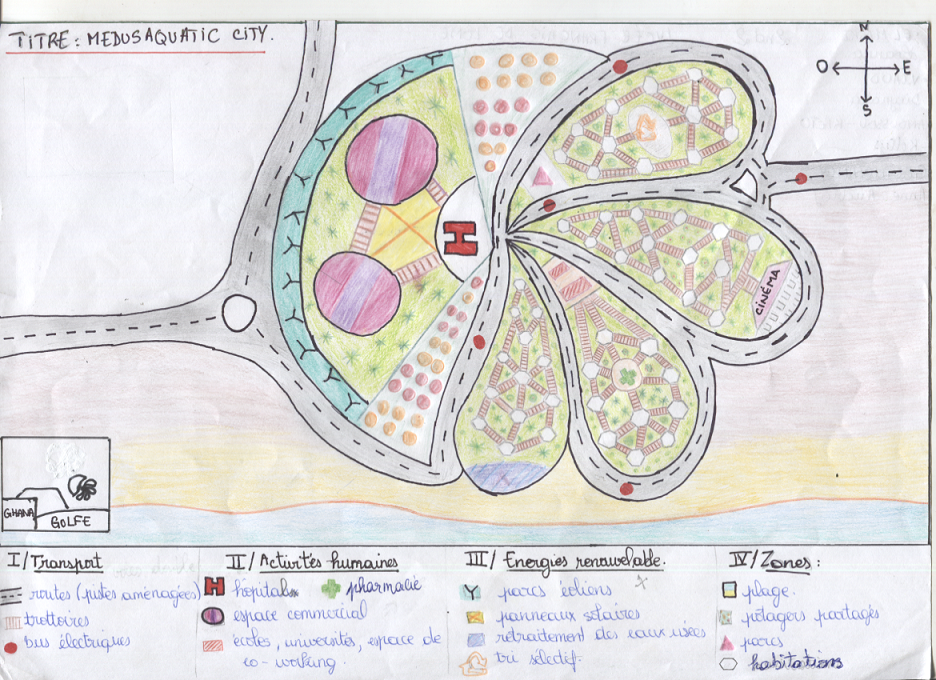 TITRE : MEDUSAQUATIC CITY.
N
O E
S
H
CINÉMA
GHANA
GOLFE
I/ Transport
routes (pistes aménagées)
trottoires
bus électriques
II/ Activités humaines
H hôpital pharmacie
espace commercial
écoles, universités, espace de
co-working.
III/ Energies renouvelable.
parcs éoliens
panneaux solaires
retraitement des eaux usées
tri sélectif.
IV/ Zones :
plage.
potagers partagés
parcs
habitations